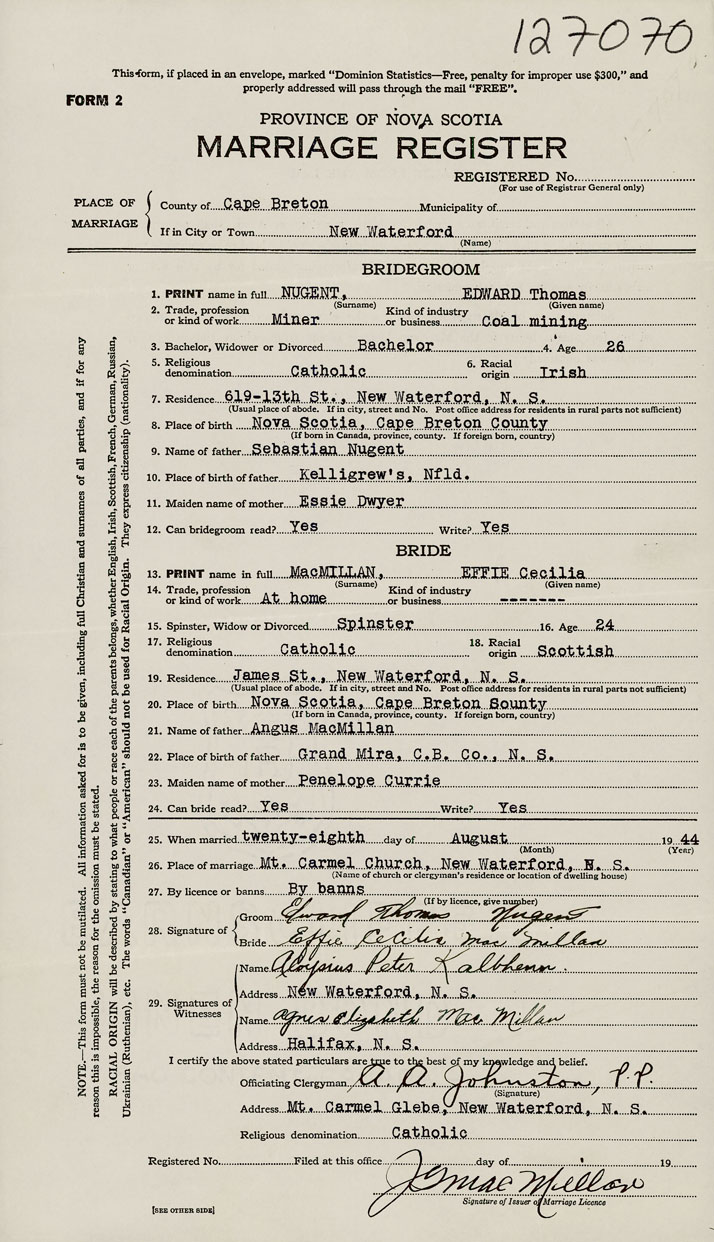 127070
This form, if placed in an envelope, marked "Dominion Statistics—Free, penalty for improper use $300," and
properly addressed will pass through the mail "FREE".
FORM 2
PROVINCE OF NOVA SCOTIA
MARRIAGE REGISTER
REGISTERED No.
(For use of Registrar General only)
PLACE OF MARRIAGE
County of Cape Breton Municipality of
If in City or Town New Waterford
(Name)
BRIDEGROOM
1. PRINT name in full NUGENT, EDWARD Thomas
(Surname) (Given name)
2. Trade, profession or kind of work Miner Kind of industry or business Coal mining
3. Bachelor, Widower or Divorced Bachelor 4. Age 26
5. Religious denomination Catholic 6. Racial origin Irish
7. Residence 619-13th St., New Waterford, N. S.
(Usual place of abode. If in city, street and No. Post office address for residents in rural parts not sufficient)
8. Place of birth Nova Scotia, Cape Breton County
(If born in Canada, province, county. If foreign born, country)
9. Name of father Sebastian Nugent
10. Place of birth of father Kelligrew's, Nfld.
11. Maiden name of mother Essie Dwyer
12. Can bridegroom read? Yes Write? Yes
BRIDE
13. PRINT name in full MacMILLAN, EFFIE Cecilia
(Surname) (Given name)
14. Trade, profession or kind of work At home Kind of industry or business -------
15. Spinster, Widow or Divorced Spinster 16. Age 24
17. Religious denomination Catholic 18. Racial origin Scottish
19. Residence James St., New Waterford, N. S.
(Usual place of abode. If in city, street and No. Post office address for residents in rural parts not sufficient)
20. Place of birth Nova Scotia, Cape Breton Sounty
(If born in Canada, province, county. If foreign born, country)
21. Name of father Angus MacMillan
22. Place of birth of father Grand Mira, C.B. Co., N. S.
23. Maiden name of mother Penelope Currie
24. Can bride read? Yes Write? Yes
25. When married twenty-eighth day of August 19 44
(Month) (Year)
26. Place of marriage Mt. Carmel Church, New Waterford, N. S.
(Name of church or clergyman's residence or location of dwelling house)
27. By licence or banns By banns
(If by licence, give number)
28. Signature of
Groom Edward Thomas Nugent
Bride Effie Cecilia Mac Millan
29. Signatures of Witnesses
Name Aloysius Peter Kalbhenn.
Address New Waterford, N. S.
Name Agnes Elizabeth Mac Millan
Address Halifax, N. S.
I certify the above stated particulars are true to the best of my knowledge and belief.
Officiating Clergyman A. A. Johnston, P.P.
(Signature)
Address Mt. Carmel Glebe, New Waterford, N. S.
Religious denomination Catholic
Registered No. Filed at this office day of 19
J G Mac Millan
Signature of Issuer of Marriage Licence
[SEE OTHER SIDE]
NOTE.—This form must not be mutilated. All information asked for is to be given, including full Christian and surnames of all parties, and if for any
reason this is impossible, the reason for the omission must be stated.
RACIAL ORIGIN will be described by stating to what people or race each of the parents belongs, whether English, Irish, Scottish, French, German, Russian,
Ukrainian (Ruthenian), etc. The words "Canadian" or "American" should not be used for Racial Origin. They express citizenship (nationality).